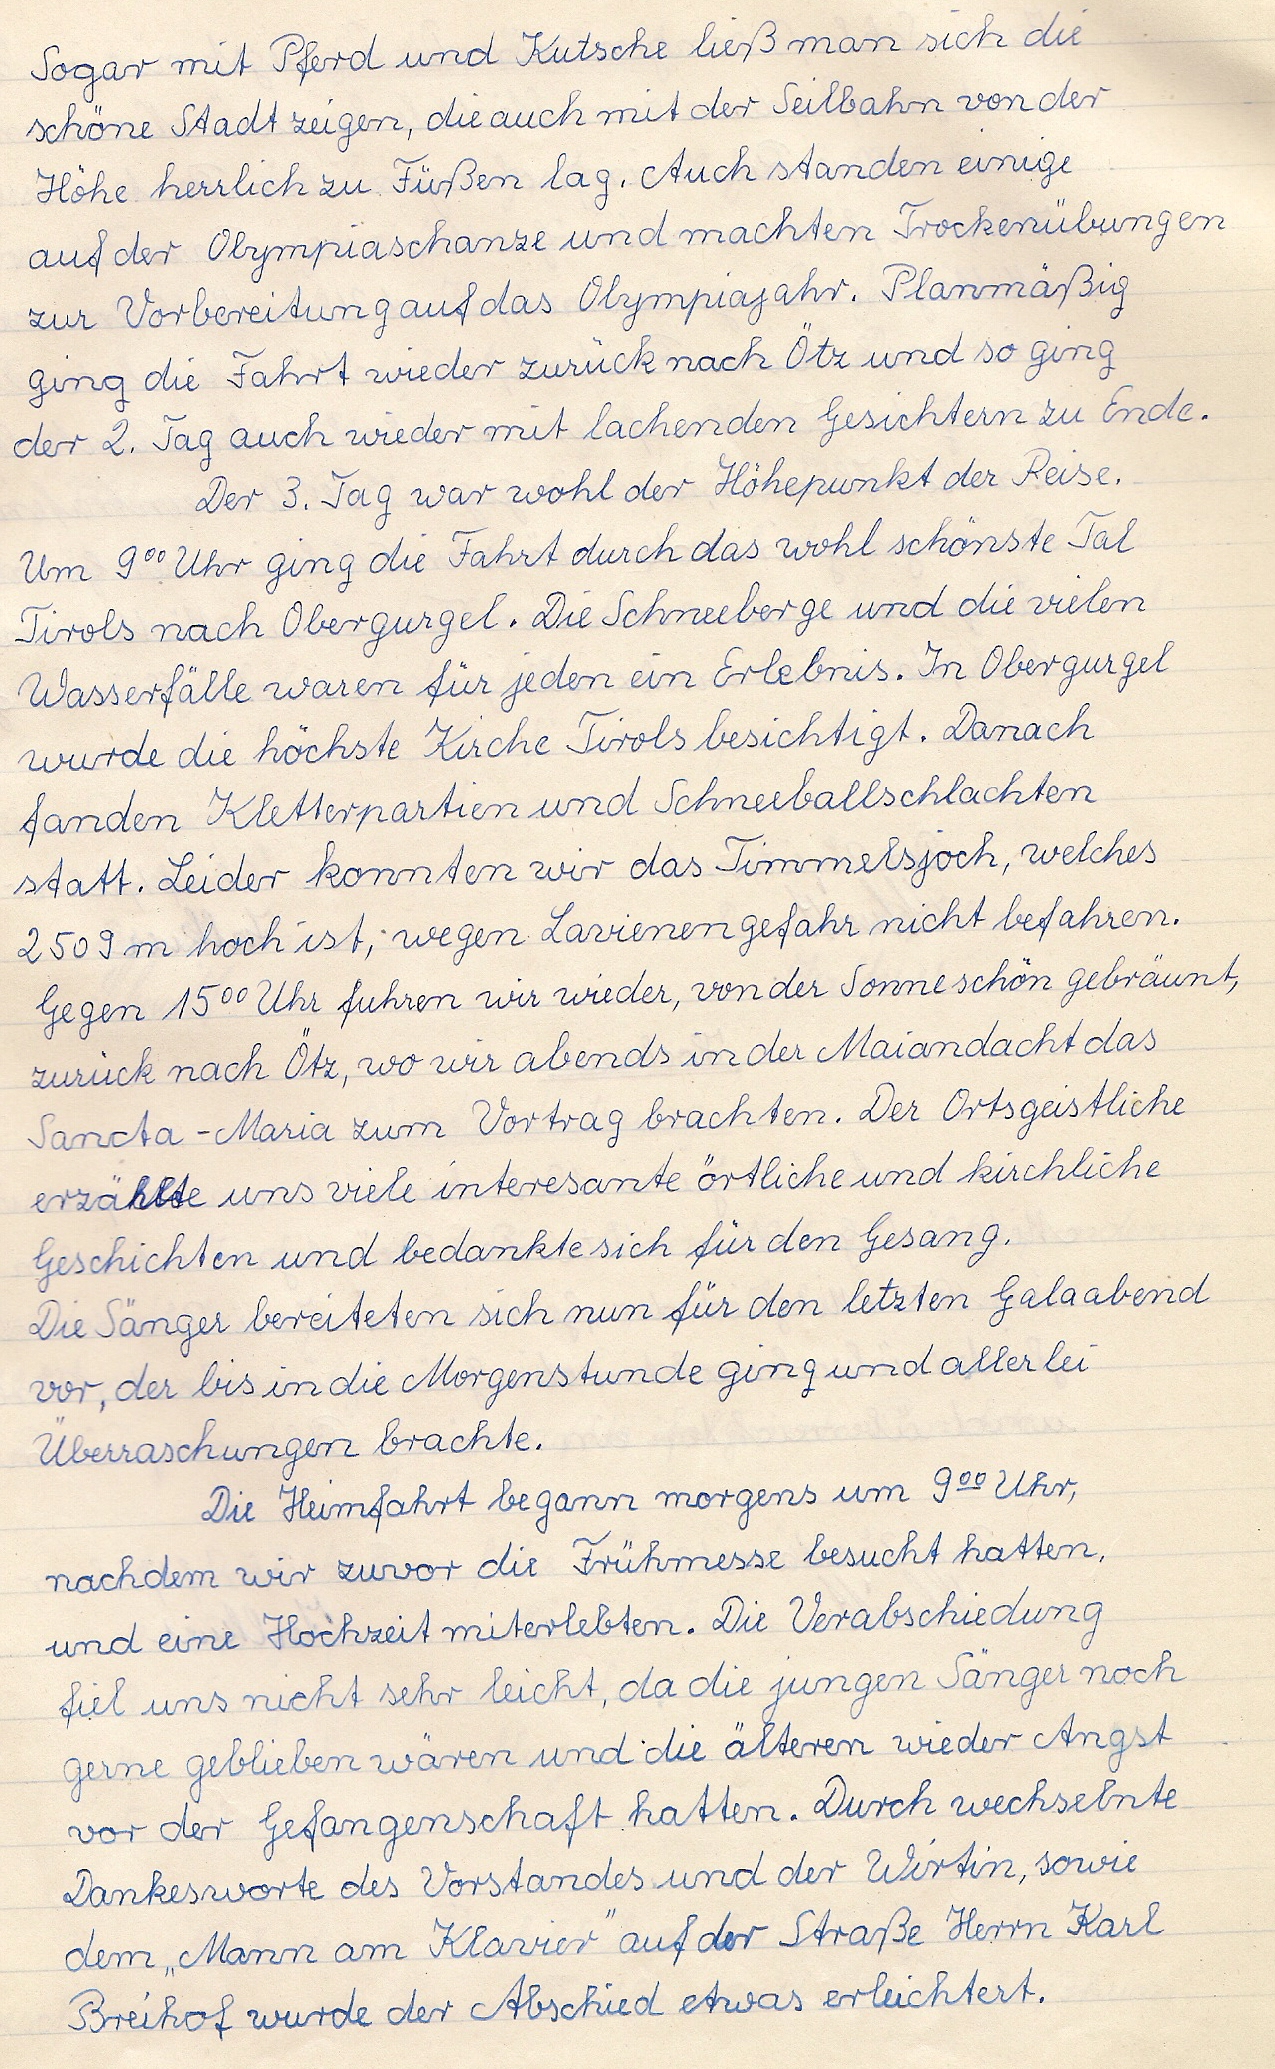 Sogar mit Pferd und Kutsche ließ man sich die
schöne Stadt zeigen, die auch mit der Seilbahn von der
Höhe herrlich zu Füßen lag. Auch standen einige
auf der Olympiaschanze und machten Trockenübungen
zur Vorbereitung auf das Olympiajahr. Planmäßig
ging die Fahrt wieder zurück nach Ötz und so ging
der 2. Tag auch wieder mit lachenden Gesichtern zu Ende.
Der 3. Tag war wohl der Höhepunkt der Reise.
Um 9⁰⁰ Uhr ging die Fahrt durch das wohl schönste Tal
Tirols nach Obergurgel. Die Schneeberge und die vielen
Wasserfälle waren für jeden ein Erlebnis. In Obergurgel
wurde die höchste Kirche Tirols besichtigt. Danach
fanden Kletterpartien und Schneeballschlachten
statt. Leider konnten wir das Timmelsjoch, welches
2509 m hoch ist, wegen Lavienengefahr nicht befahren.
Gegen 15⁰⁰ Uhr fuhren wir wieder, von der Sonne schön gebräunt,
zurück nach Ötz, wo wir abends in der Maiandacht das
Sancta-Maria zum Vortrag brachten. Der Ortsgeistliche
erzählte uns viele interesante örtliche und kirchliche
Geschichten und bedankte sich für den Gesang.
Die Sänger bereiteten sich nun für den letzten Galaabend
vor, der bis in die Morgenstunde ging und allerlei
Überraschungen brachte.
Die Heimfahrt begann morgens um 9⁰⁰ Uhr,
nachdem wir zuvor die Frühmesse besucht hatten,
und eine Hochzeit miterlebten. Die Verabschiedung
fiel uns nicht sehr leicht, da die jungen Sänger noch
gerne geblieben wären und die älteren wieder Angst
vor der Gefangenschaft hatten. Durch wechselnte
Dankesworte des Vorstandes und der Wirtin, sowie
dem „Mann am Klavier" auf der Straße Herrn Karl
Breihof wurde der Abschied etwas erleichtert.